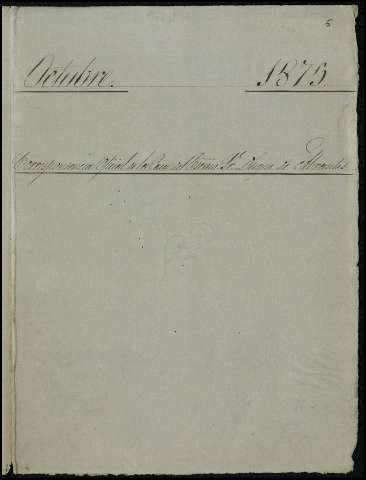 6
Octubre. 1875.
Correspondencia Oficial de la Casa del Excmo Sr. Duque de Abrantes